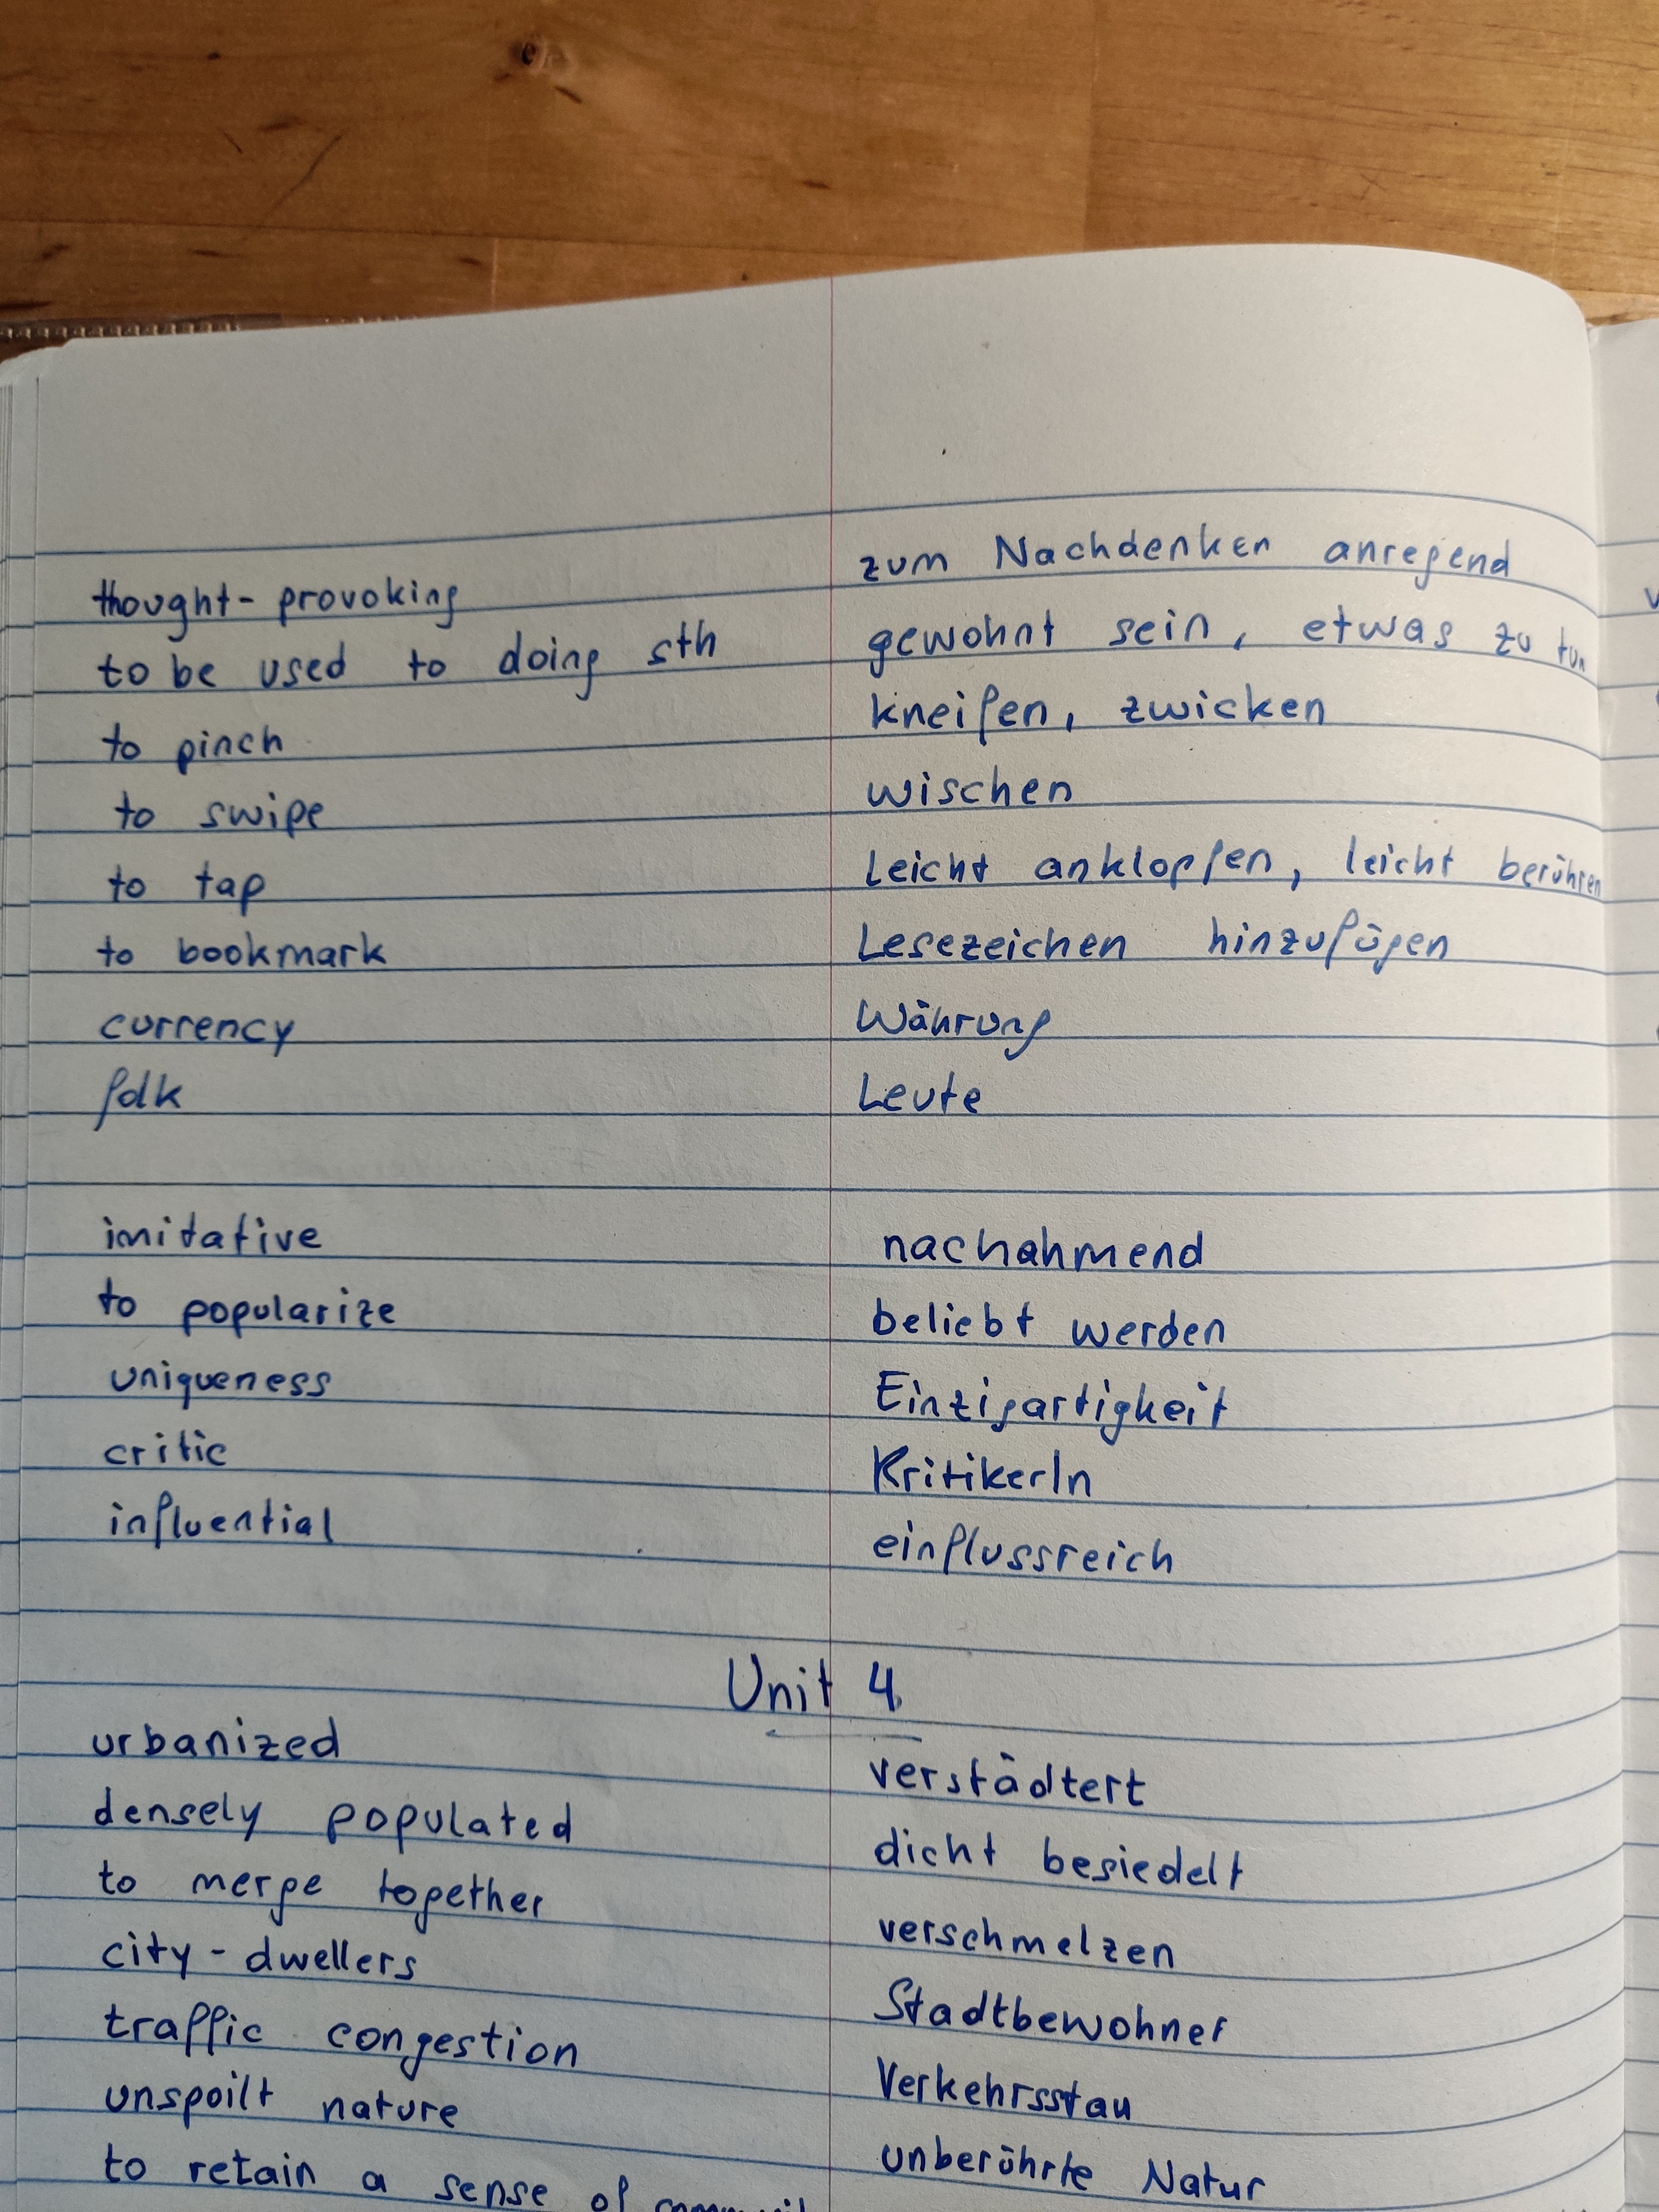 thought-provoking zum Nachdenken anregend
to be used to doing sth gewohnt sein, etwas zu tun
to pinch kneifen, zwicken
to swipe wischen
to tap Leicht anklopfen, leicht berühren
to bookmark Lesezeichen hinzufügen
currency Währung
folk Leute
imitative nachahmend
to popularize beliebt werden
uniqueness Einzigartigkeit
critic KritikerIn
influential einflussreich
Unit 4
urbanized verstädtert
densely populated dicht besiedelt
to merge together verschmelzen
city-dwellers Stadtbewohner
traffic congestion Verkehrsstau
unspoilt nature unberührte Natur
to retain a sense of